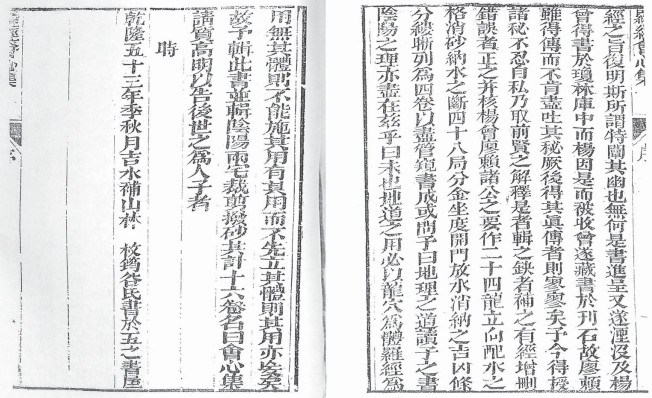 羅經會心集
序
經之旨復明斯所謂特闡其幽也無何是書進呈又遂湮沒及楊
曾得書於瓊林庫中而楊因是而被收曾遂藏書於刊石故廖賴
雖得傳而不肯盡吐其秘厥後得其眞傳者則寥寥矣予今得授
諸秘不忍自私乃取前賢之解釋是者輯之缺者補之有經增刪
錯誤者正之并核楊曾廖賴諸公之要作二十四龍立向配水之
格消砂納水之斷四十八局分金坐度開門放水消納之吉凶條
分縷晰列爲四卷以盡管窺書成或問予曰地理之道讀子之書
陰陽之理亦盡在茲乎曰未也地道之用必以龍穴爲體羅經爲
用無其體則不能施其用有其用而不先立其體則其用亦
故予輯此書並輯陰陽兩宅裁剪撥砂共計十六卷名曰會心集
請質高明以告後世之爲人子者
時
乾隆五十三年季秋月吉水補山林 枚筠谷氏書於五之書屋
序